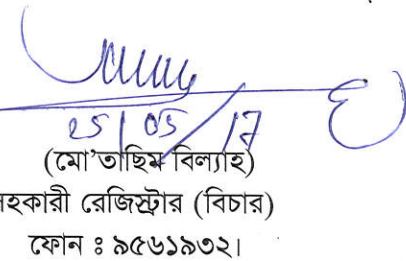 25/05/17
(মো'তাছিম বিল্যাহ)
সহকারী রেজিস্ট্রার (বিচার)
ফোন ঃ ৯৫৬১৯৩২।